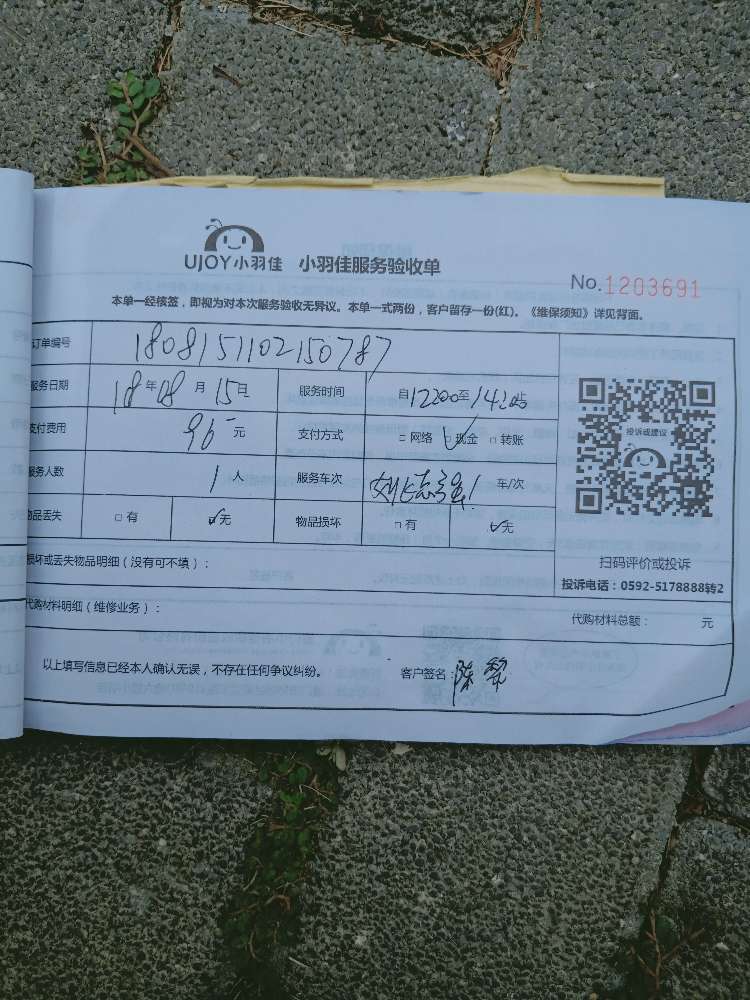 UJOY小羽佳 小羽佳服务验收单
No.1203691
本单一经核签，即视为对本次服务验收无异议。本单一式两份，客户留存一份(红)。《维保须知》详见背面。
订单编号 1808151102150787
服务日期 18年08月15日 服务时间 自12:00至14:00
支付费用 96元 支付方式 □网络 ☑现金 □转账
服务人数 1人 服务车次 刘志强1 车/次
物品丢失 □有 ☑无 物品损坏 □有 ☑无
投诉或建议
扫码评价或投诉
投诉电话：0592-5178888转2
损坏或丢失物品明细（没有可不填）：
代购材料明细（维修业务）： 代购材料总额： 元
以上填写信息已经本人确认无误，不存在任何争议纠纷。 客户签名：陈